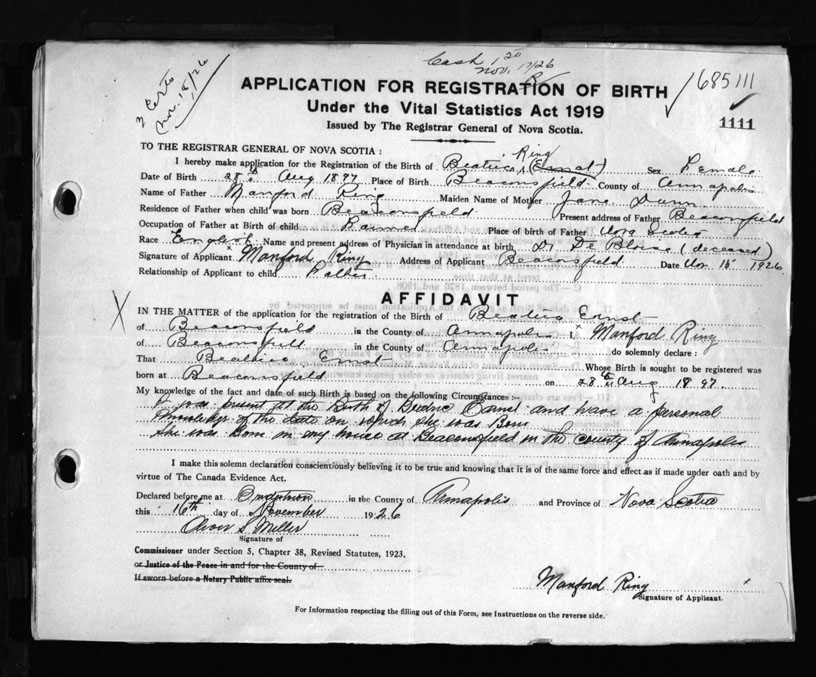 Cash 1 20
Nov. 17/26
2 Certs
Nov. 18/26
685111
1111
APPLICATION FOR REGISTRATION OF BIRTH
Under the Vital Statistics Act 1919
Issued by The Registrar General of Nova Scotia.
TO THE REGISTRAR GENERAL OF NOVA SCOTIA :
Ring
I hereby make application for the Registration of the Birth of Beatrice (Ernst) Sex Female
Date of Birth 28th Aug 1897 Place of Birth Beaconsfield County of Annapolis
Name of Father Manford Ring Maiden Name of Mother Jane Dunn
Residence of Father when child was born Beaconsfield Present address of Father Beaconsfield
Occupation of Father at Birth of child Farmer Place of birth of Father Nova Scotia
Race English Name and present address of Physician in attendance at birth Dr De Blois (deceased)
Signature of Applicant Manford Ring Address of Applicant Beaconsfield Date Nov 16 1926
Relationship of Applicant to child Father
AFFIDAVIT
IN THE MATTER of the application for the registration of the Birth of Beatrice Ernst
of Beaconsfield in the County of Annapolis I, Manford Ring
of Beaconsfield in the County of Annapolis do solemnly declare :
That Beatrice Ernst Whose Birth is sought to be registered was
born at Beaconsfield on 28th Aug 1897.
My knowledge of the fact and date of such Birth is based on the following Circumstances :-
I was present at the Birth of Beatrice Ernst and have a personal
knowledge of the date on which she was Born
She was Born in my house at Beaconsfield in the County of Annapolis
I make this solemn declaration conscientiously believing it to be true and knowing that it is of the same force and effect as if made under oath and by
virtue of The Canada Evidence Act.
Declared before me at in the County of Annapolis and Province of Nova Scotia
this 16th day of November 1926
Oliver S. Miller
Signature of
Commissioner under Section 5, Chapter 38, Revised Statutes, 1923.
or Justice of the Peace in and for the County of
If sworn before a Notary Public affix seal.
Manford Ring
Signature of Applicant.
For Information respecting the filling out of this Form, see Instructions on the reverse side.